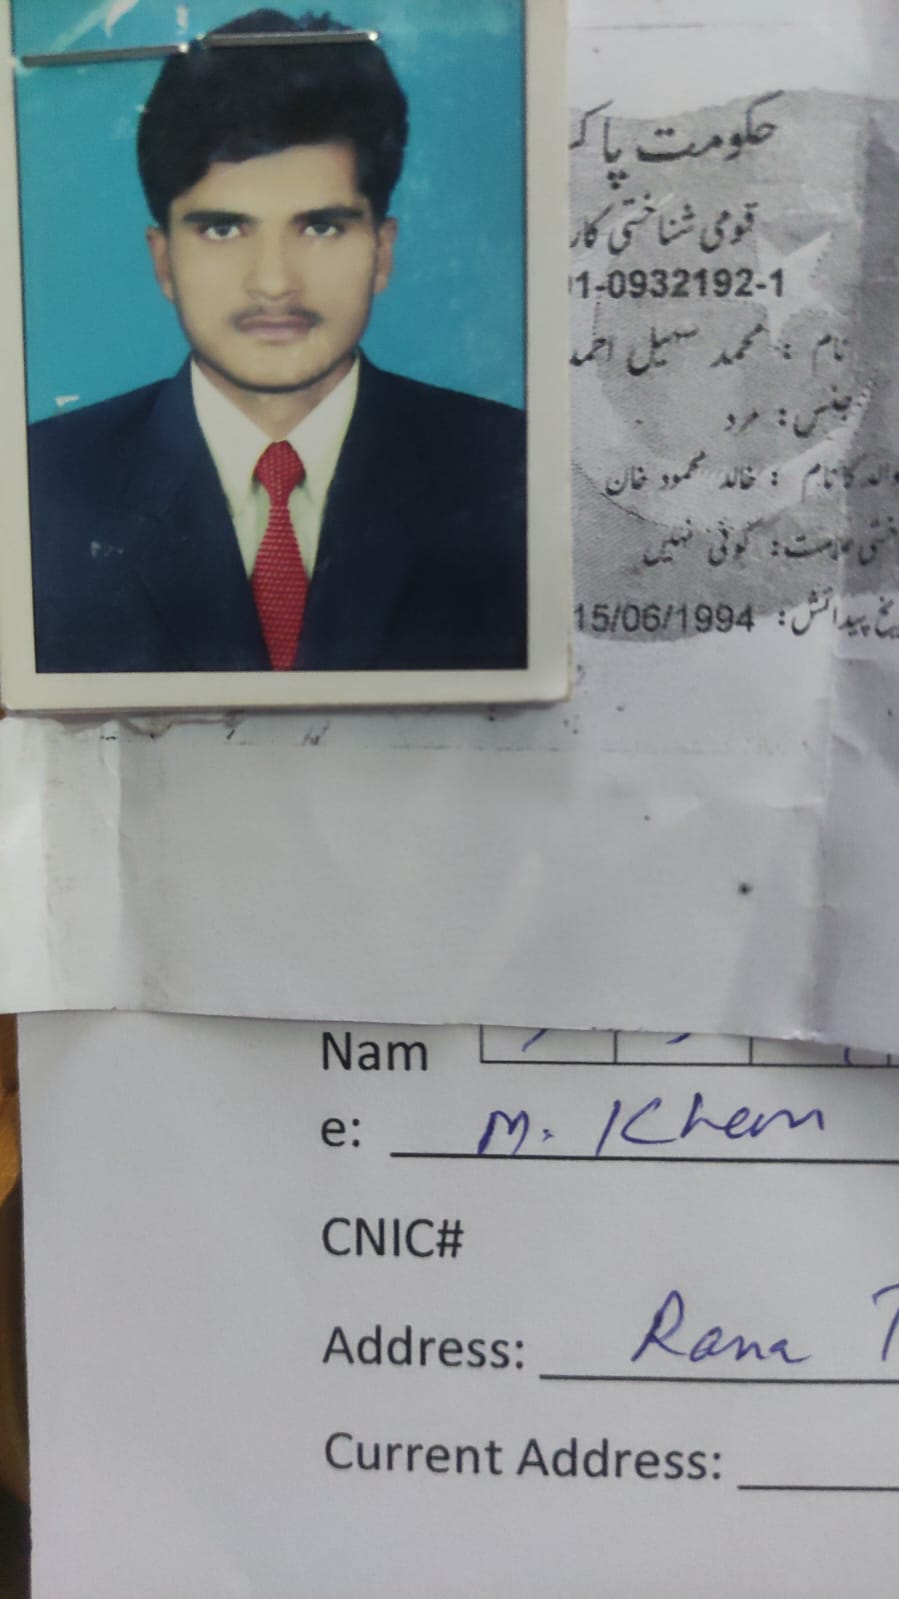 حکومت پاک
قومی شناختی کار
1-0932192-1
نام : محمد سہیل احمد
جنس: مرد
والد کا نام : خالد محمود خان
ختی علامت: کوئی نہیں
یخ پیدائش: 15/06/1994
Nam
e: M. Khem
CNIC#
Address: Rana
Current Address: